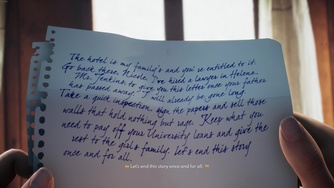 The hotel is my family's and you're entitled to it.
Go back there, Nicole. I've hired a lawyer in Helena,
Ms. Jenkins, to give you this letter once your father
has passed away. I will already be gone long.
Take a quick inspection, sign the papers and sell those
walls that hold nothing but rage. Keep what you
need to pay off your University loans and give the
rest to the girl's family. Let's end this story
once and for all.
Let's end this story once and for all.